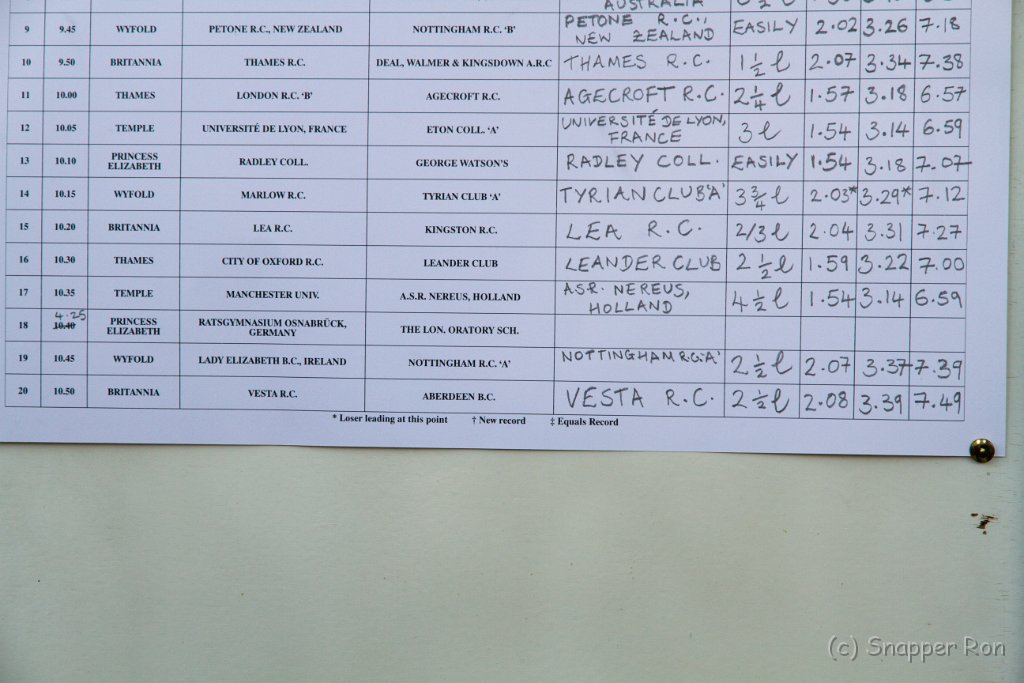 AUSTRALIA
9 9.45 WYFOLD PETONE R.C., NEW ZEALAND NOTTINGHAM R.C. ‘B’ PETONE R.C., NEW ZEALAND EASILY 2.02 3.26 7.18
10 9.50 BRITANNIA THAMES R.C. DEAL, WALMER & KINGSDOWN A.R.C THAMES R.C. 1 1/2 l 2.07 3.34 7.38
11 10.00 THAMES LONDON R.C. ‘B’ AGECROFT R.C. AGECROFT R.C. 2 1/4 l 1.57 3.18 6.57
12 10.05 TEMPLE UNIVERSITÉ DE LYON, FRANCE ETON COLL. ‘A’ UNIVERSITÉ DE LYON, FRANCE 3 l 1.54 3.14 6.59
13 10.10 PRINCESS ELIZABETH RADLEY COLL. GEORGE WATSON'S RADLEY COLL. EASILY 1.54 3.18 7.07
14 10.15 WYFOLD MARLOW R.C. TYRIAN CLUB ‘A’ TYRIAN CLUB ‘A’ 3 3/4 l 2.03* 3.29* 7.12
15 10.20 BRITANNIA LEA R.C. KINGSTON R.C. LEA R.C. 2/3 l 2.04 3.31 7.27
16 10.30 THAMES CITY OF OXFORD R.C. LEANDER CLUB LEANDER CLUB 2 1/2 l 1.59 3.22 7.00
17 10.35 TEMPLE MANCHESTER UNIV. A.S.R. NEREUS, HOLLAND A.S.R. NEREUS, HOLLAND 4 1/2 l 1.54 3.14 6.59
18 4.25 10.40 PRINCESS ELIZABETH RATSGYMNASIUM OSNABRÜCK, GERMANY THE LON. ORATORY SCH.
19 10.45 WYFOLD LADY ELIZABETH B.C., IRELAND NOTTINGHAM R.C. ‘A’ NOTTINGHAM R.C. ‘A’ 2 1/2 l 2.07 3.37 7.39
20 10.50 BRITANNIA VESTA R.C. ABERDEEN B.C. VESTA R.C. 2 1/2 l 2.08 3.39 7.49
* Loser leading at this point † New record ‡ Equals Record
(c) Snapper Ron